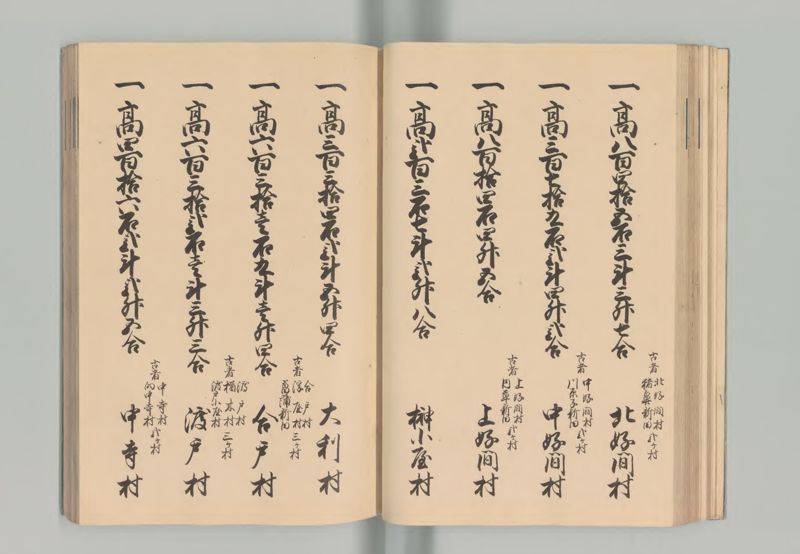 一 高八百四拾五石三斗三升七合
古者 北好間村 新田 弐ケ村
北好間村
一 高三百七拾九石弐斗四升弐合
古者 中好間村 川原子新田 弐ケ村
中好間村
一 高八百拾四石四升五合
古者 上好間村 新田 弐ケ村
上好間村
一 高弐百三石七斗弐升八合
榊小屋村
一 高三百三拾四石弐斗五升四合
大利村
一 高六百三拾壱石九斗壱升四合
古者 合戸村 深屋村 菖蒲新田 三ケ村
合戸村
一 高六百三拾弐石壱斗三升三合
古者 渡戸村 橋本村 渡戸小屋村 三ケ村
渡戸村
一 高四百拾六石弐斗弐升五合
古者 中寺村 的中寺村 弐ケ村
中寺村